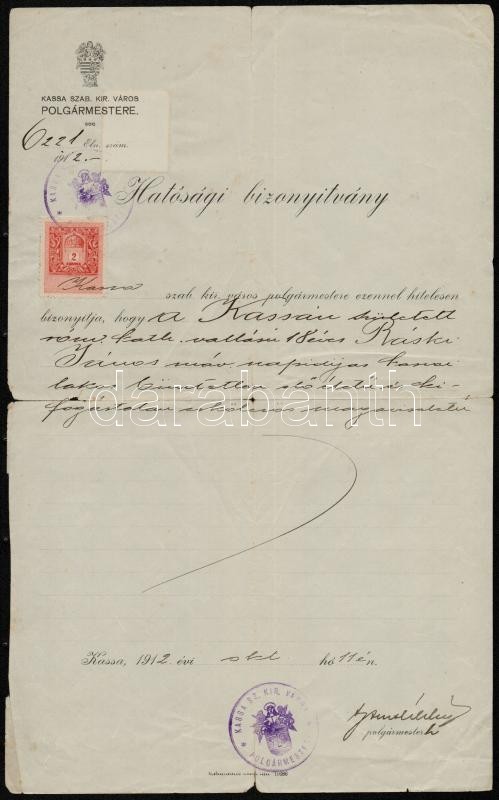 KASSA SZAB. KIR. VÁROS
POLGÁRMESTERE.
6221 Eln. szám.
1912.-
Hatósági bizonyitvány
2
Kassa szab. kir. város polgármestere ezennel hitelesen
bizonyitja, hogy a Kassán született
rom. kath. vallásu 18 éves Ráski
János máv. napidijas kassai
lakos büntetlen előéletü, ki-
fogástalan erkölcsös magaviseletü
darabanth
Kassa, 1912 évi okt. hó 11 én.
KASSA SZ. KIR. VÁROS
POLGÁRMESTERE
polgármester h